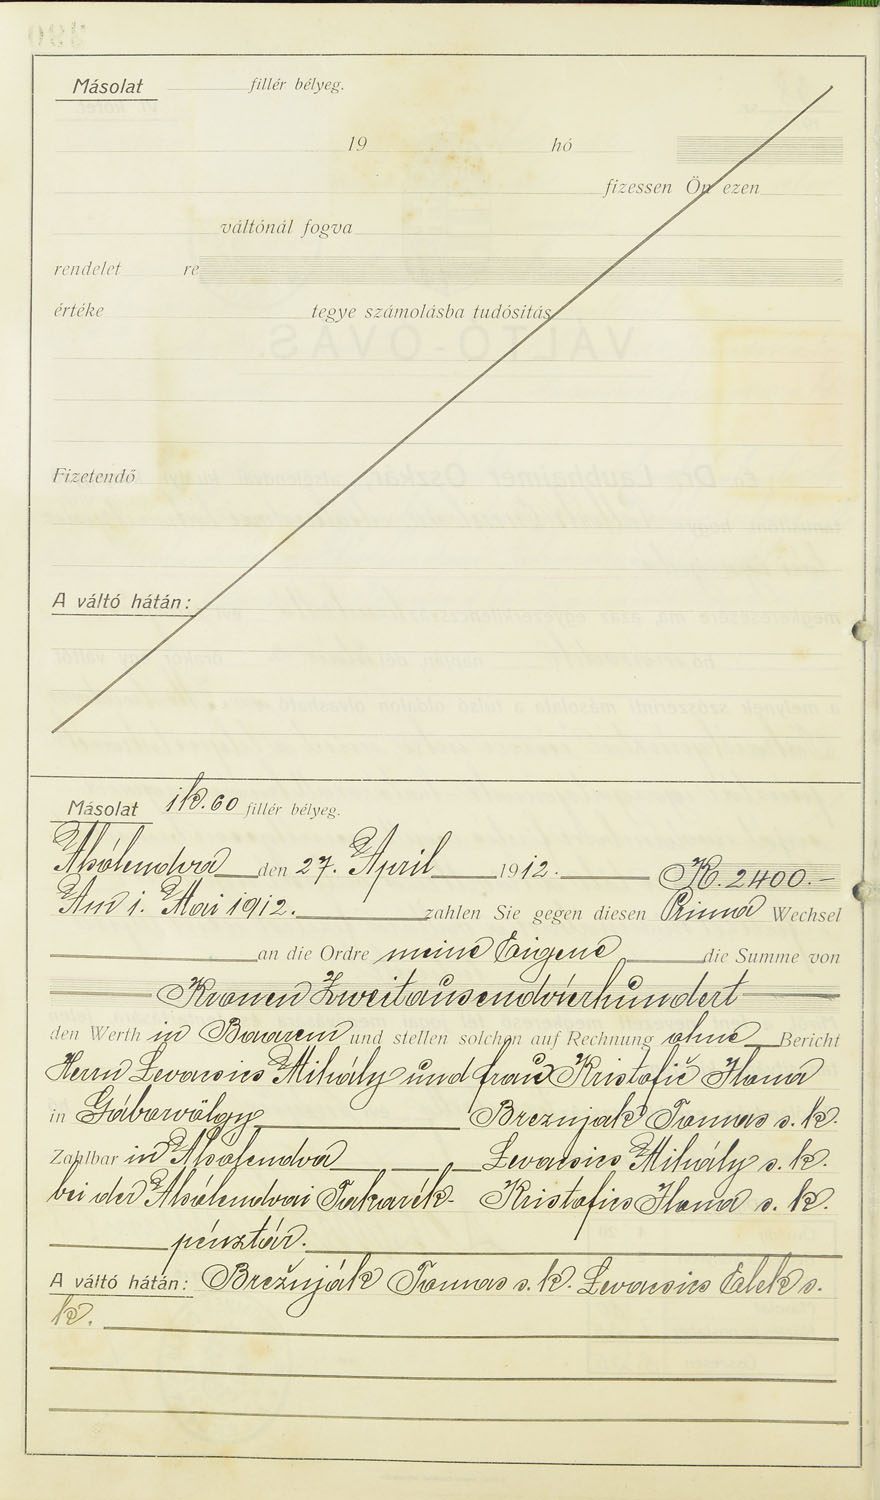 Másolat fillér bélyeg.
19 hó
fizessen Ön ezen
váltónál fogva
rendelet re
értéke tegye számolásba tudósítás
Fizetendő
A váltó hátán:
Másolat 1 K. 60 fillér bélyeg.
Alsólendva den 27. April 1912. K. 2400.-
Am 1. Mai 1912. zahlen Sie gegen diesen Prima Wechsel
an die Ordre meine Eigene die Summe von
Kronen Zweitausendvierhundert
den Werth in Baarem und stellen solchen auf Rechnung ohne Bericht
Herrn Levacsics Mihály und frau Kristofič Ilona
in Gáborvölgy Breznjak Tomas s. k.
Zahlbar in Alsólendva Levacsics Mihály s. k.
bei der Alsólendvai Takarék- Kristofics Ilona s. k.
pénztár.
A váltó hátán: Brežnják Tomas s. k. Levacsics Elek s.
k.